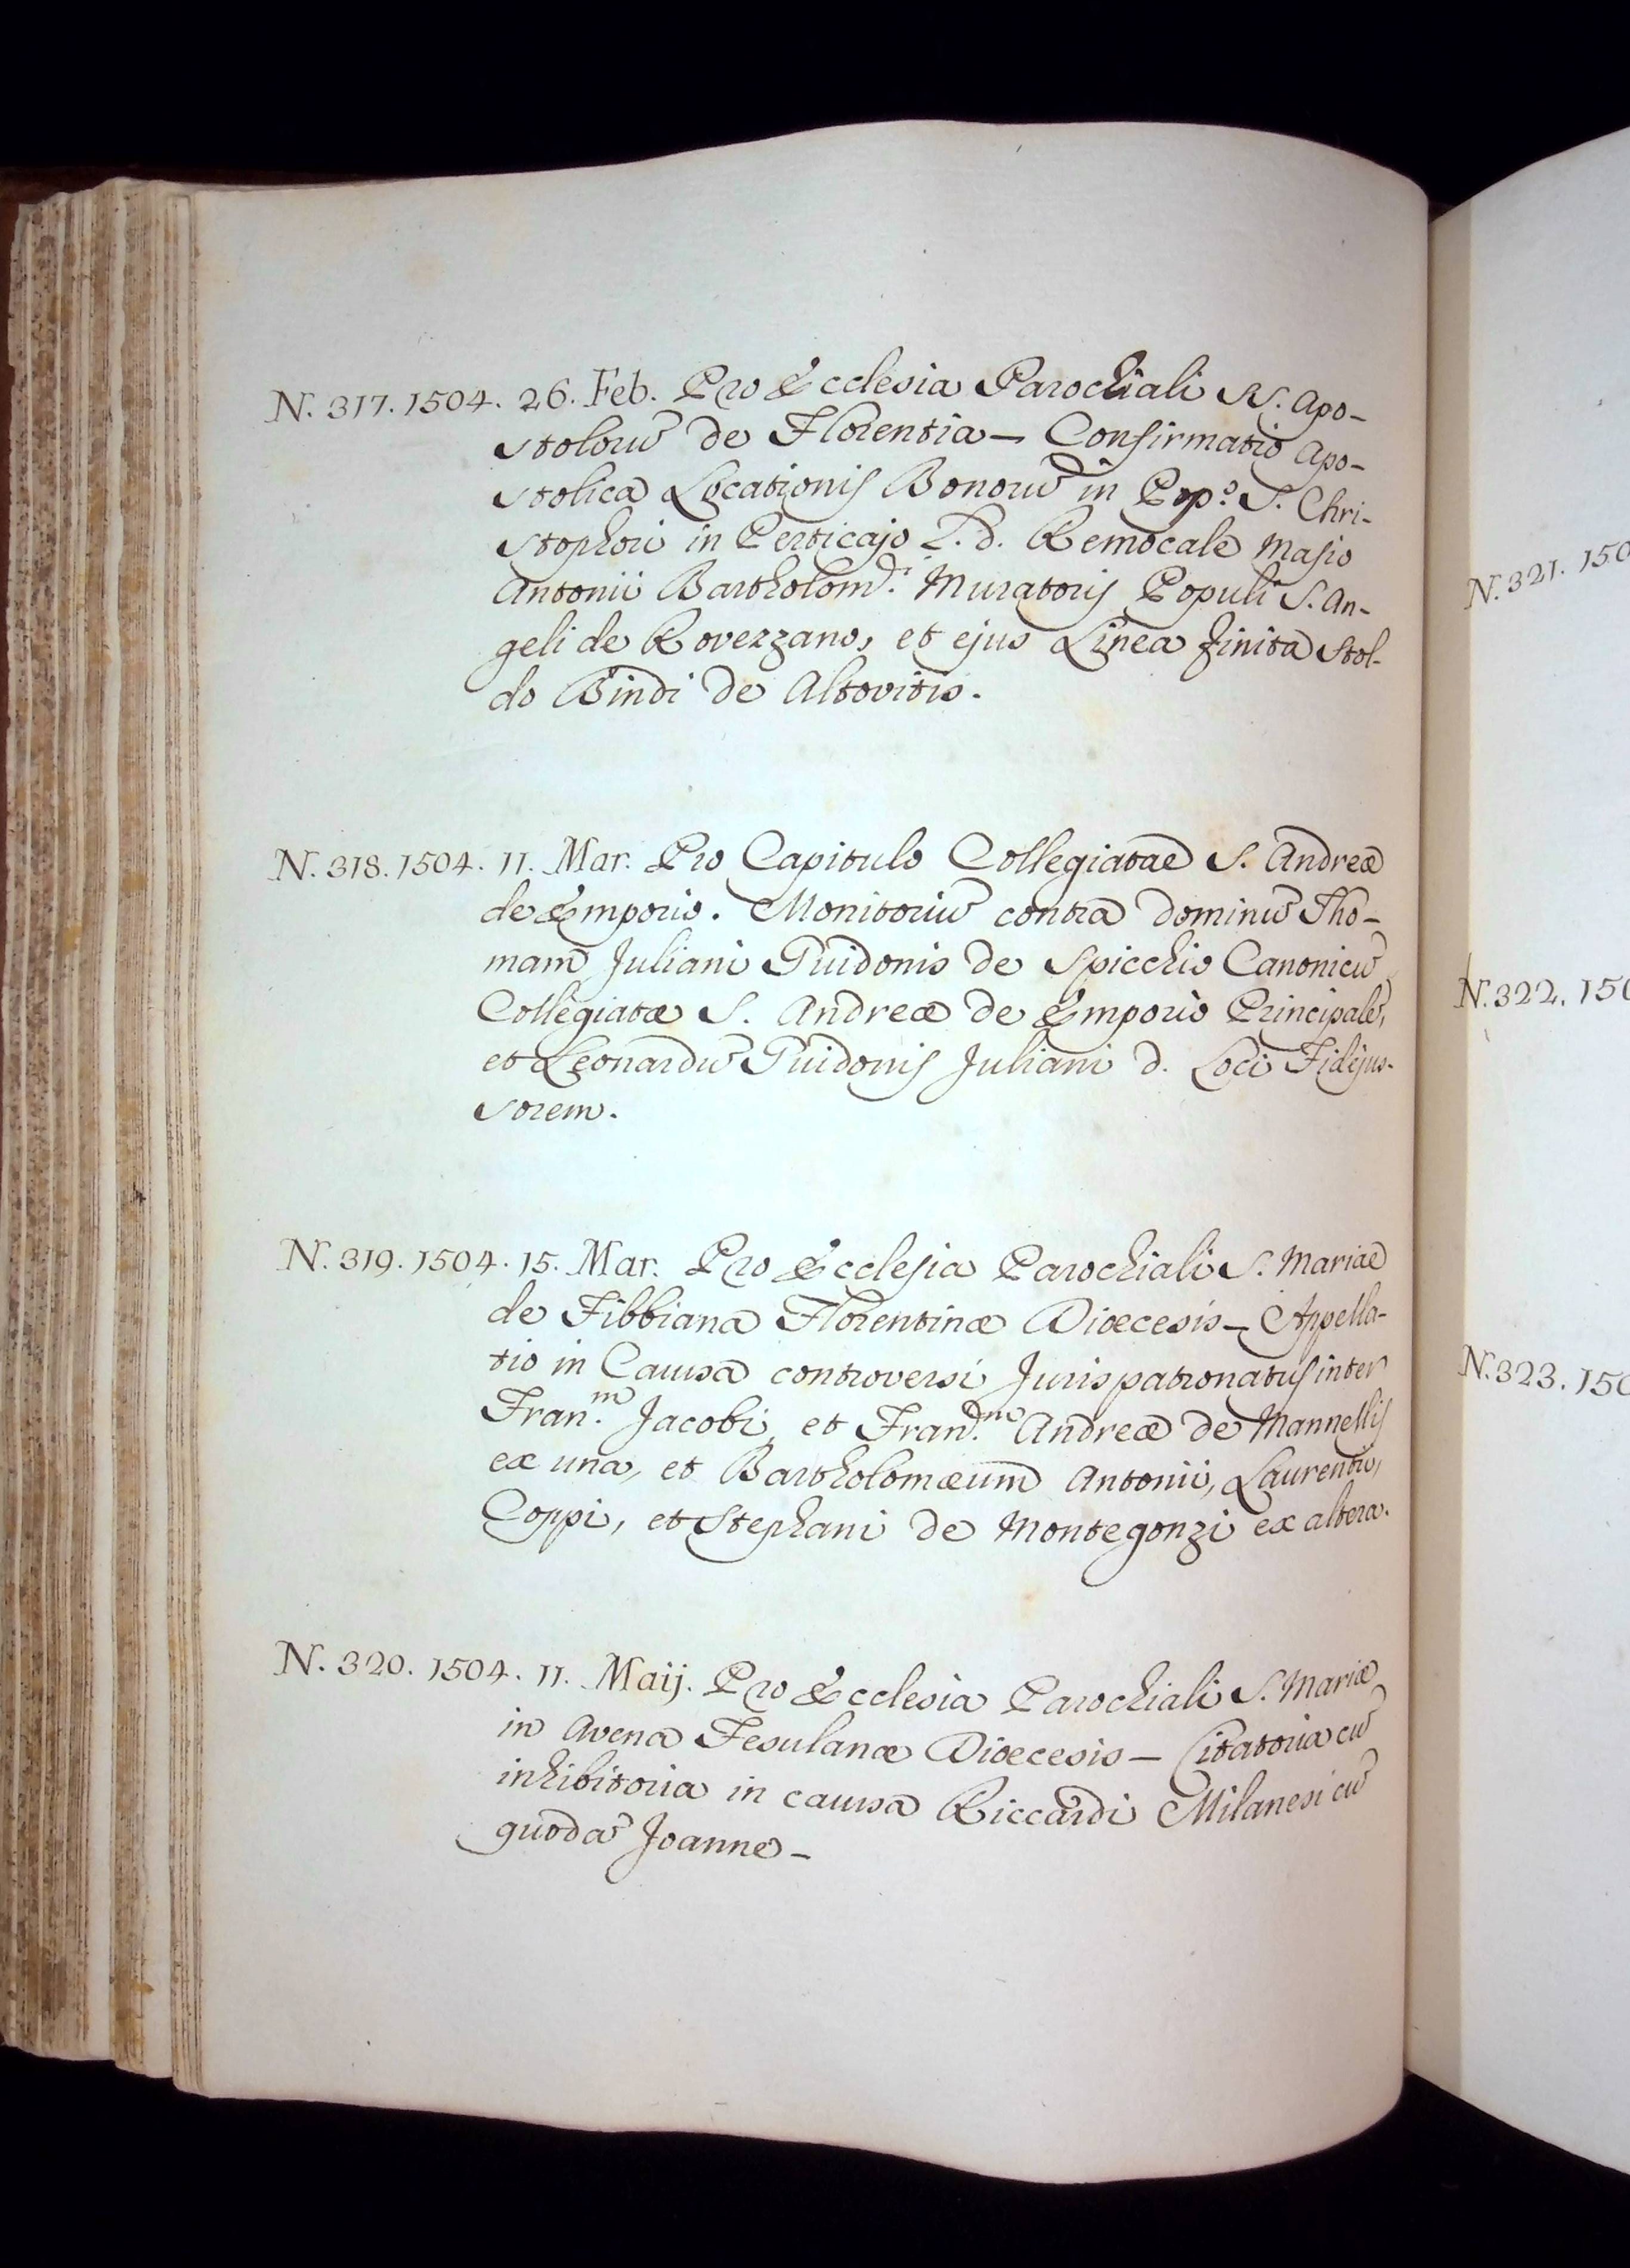 N. 317. 1504. 26. Feb. Pro Ecclesia Parochiali SS. Apo-
stolorũ de Florentia — Confirmatio Apo-
stolica Locationis Bonorũ in Pop.º S. Chri-
stophori in Perticajo L. d. Remocale Masio
Antonii Bartholom.i Muratoris Populi S. An-
geli de Rovezzano, et ejus Linea finita Stol-
do Bindi de Altovitis.
N. 318. 1504. 11. Mar. Pro Capitulo Collegiatae S. Andreæ
de Emporio. Monitoriũ contra dominũ Tho-
mam Juliani Guidonis de Spicchio Canonicũ
Collegiatæ S. Andreæ de Emporio Principale,
et Leonardũ Guidonis Juliani d. Loci Fidejus-
sorem.
N. 319. 1504. 15. Mar. Pro Ecclesia Parochiali S. Mariae
de Fibbiana Florentinæ Diœcesis — Appella-
tio in Causa controversi Jurispatronatus inter
Fran.m Jacobi, et Fran.m Andreæ de Mannellis
ex una, et Bartholomæum Antonii, Laurentii,
Coppi, et Stephani de Montegonzi ex altera.
N. 320. 1504. 11. Maij. Pro Ecclesia Parochiali S. Mariæ
in Avena Fesulanæ Diœcesis — Citatoria cũ
inhibitoria in causa Riccardi Milanesi cũ
quodã Joanne —
N. 321. 150
N. 322. 150
N. 323. 150